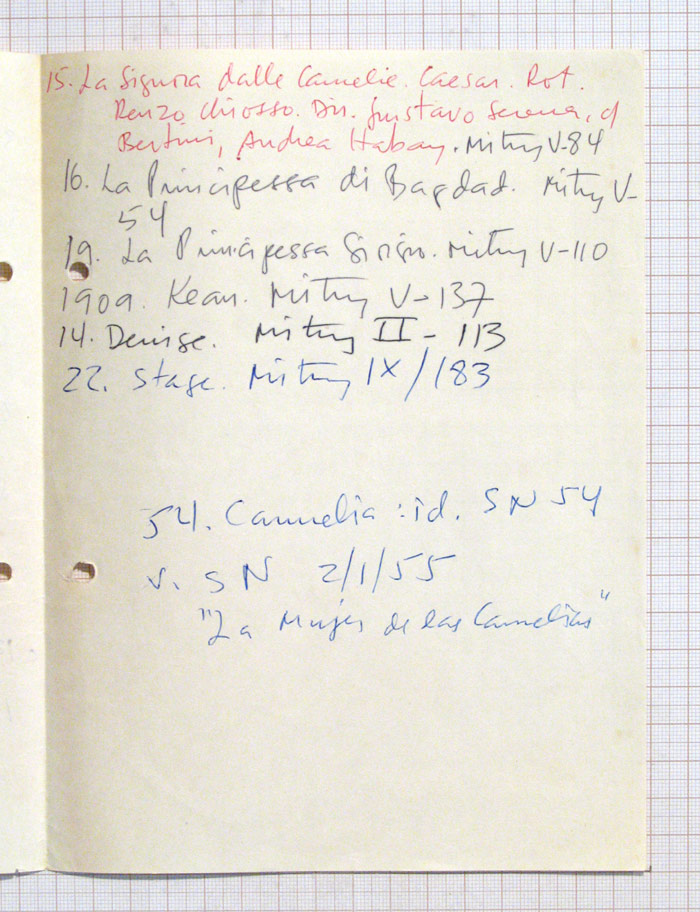 15. La Signora dalle Camelie. Caesar. Rot.
Renzo Chiosso. Dir. Gustavo Serena, c/
Bertini, Andrea Habay. Mitry V-84
16. La Principessa di Bagdad. Mitry V-
54
19. La Principessa Giorgio. Mitry V-110
1909. Kean. Mitry V-137
14. Denise. Mitry II - 113
22. Stage. Mitry IX/183
54. Camelia : id. SN 54
v. SN 2/1/55
"La Mujer de las Camelias"